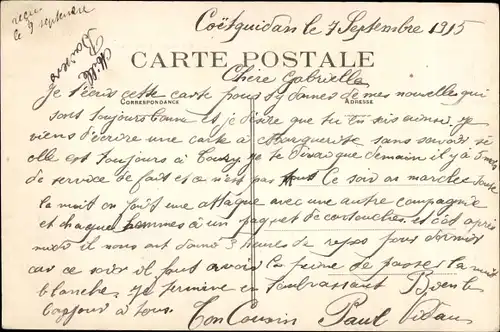 reçu
le 9 septembre
Mille Baisers
Coëtquidan le 7 Septembre 1915
CARTE POSTALE
Chère Gabrielle
Je t'écris cette carte pour t'y donner de mes nouvelles qui
CORRESPONDANCE
ADRESSE
sont toujours bonne et je désire que tu sois ainsi je
viens d'écrire une carte à Marguerite sans savoir si
elle est toujours à je te dirai que demain il y à 5 mois
de service de fait et ce n'est pas tout ce soir on marche toute
la nuit on fait une attaque avec une autre compagnie
et chaque hommes à un paquet de cartouches et cet après
midi il nous ont donné 3 heures de repos pour dormir
car ce soir il faut avoir la peine de passer la nuit
blanche. je termine en t'embrassant Bien le
bonjour à tous. Ton Cousin Paul Vidau